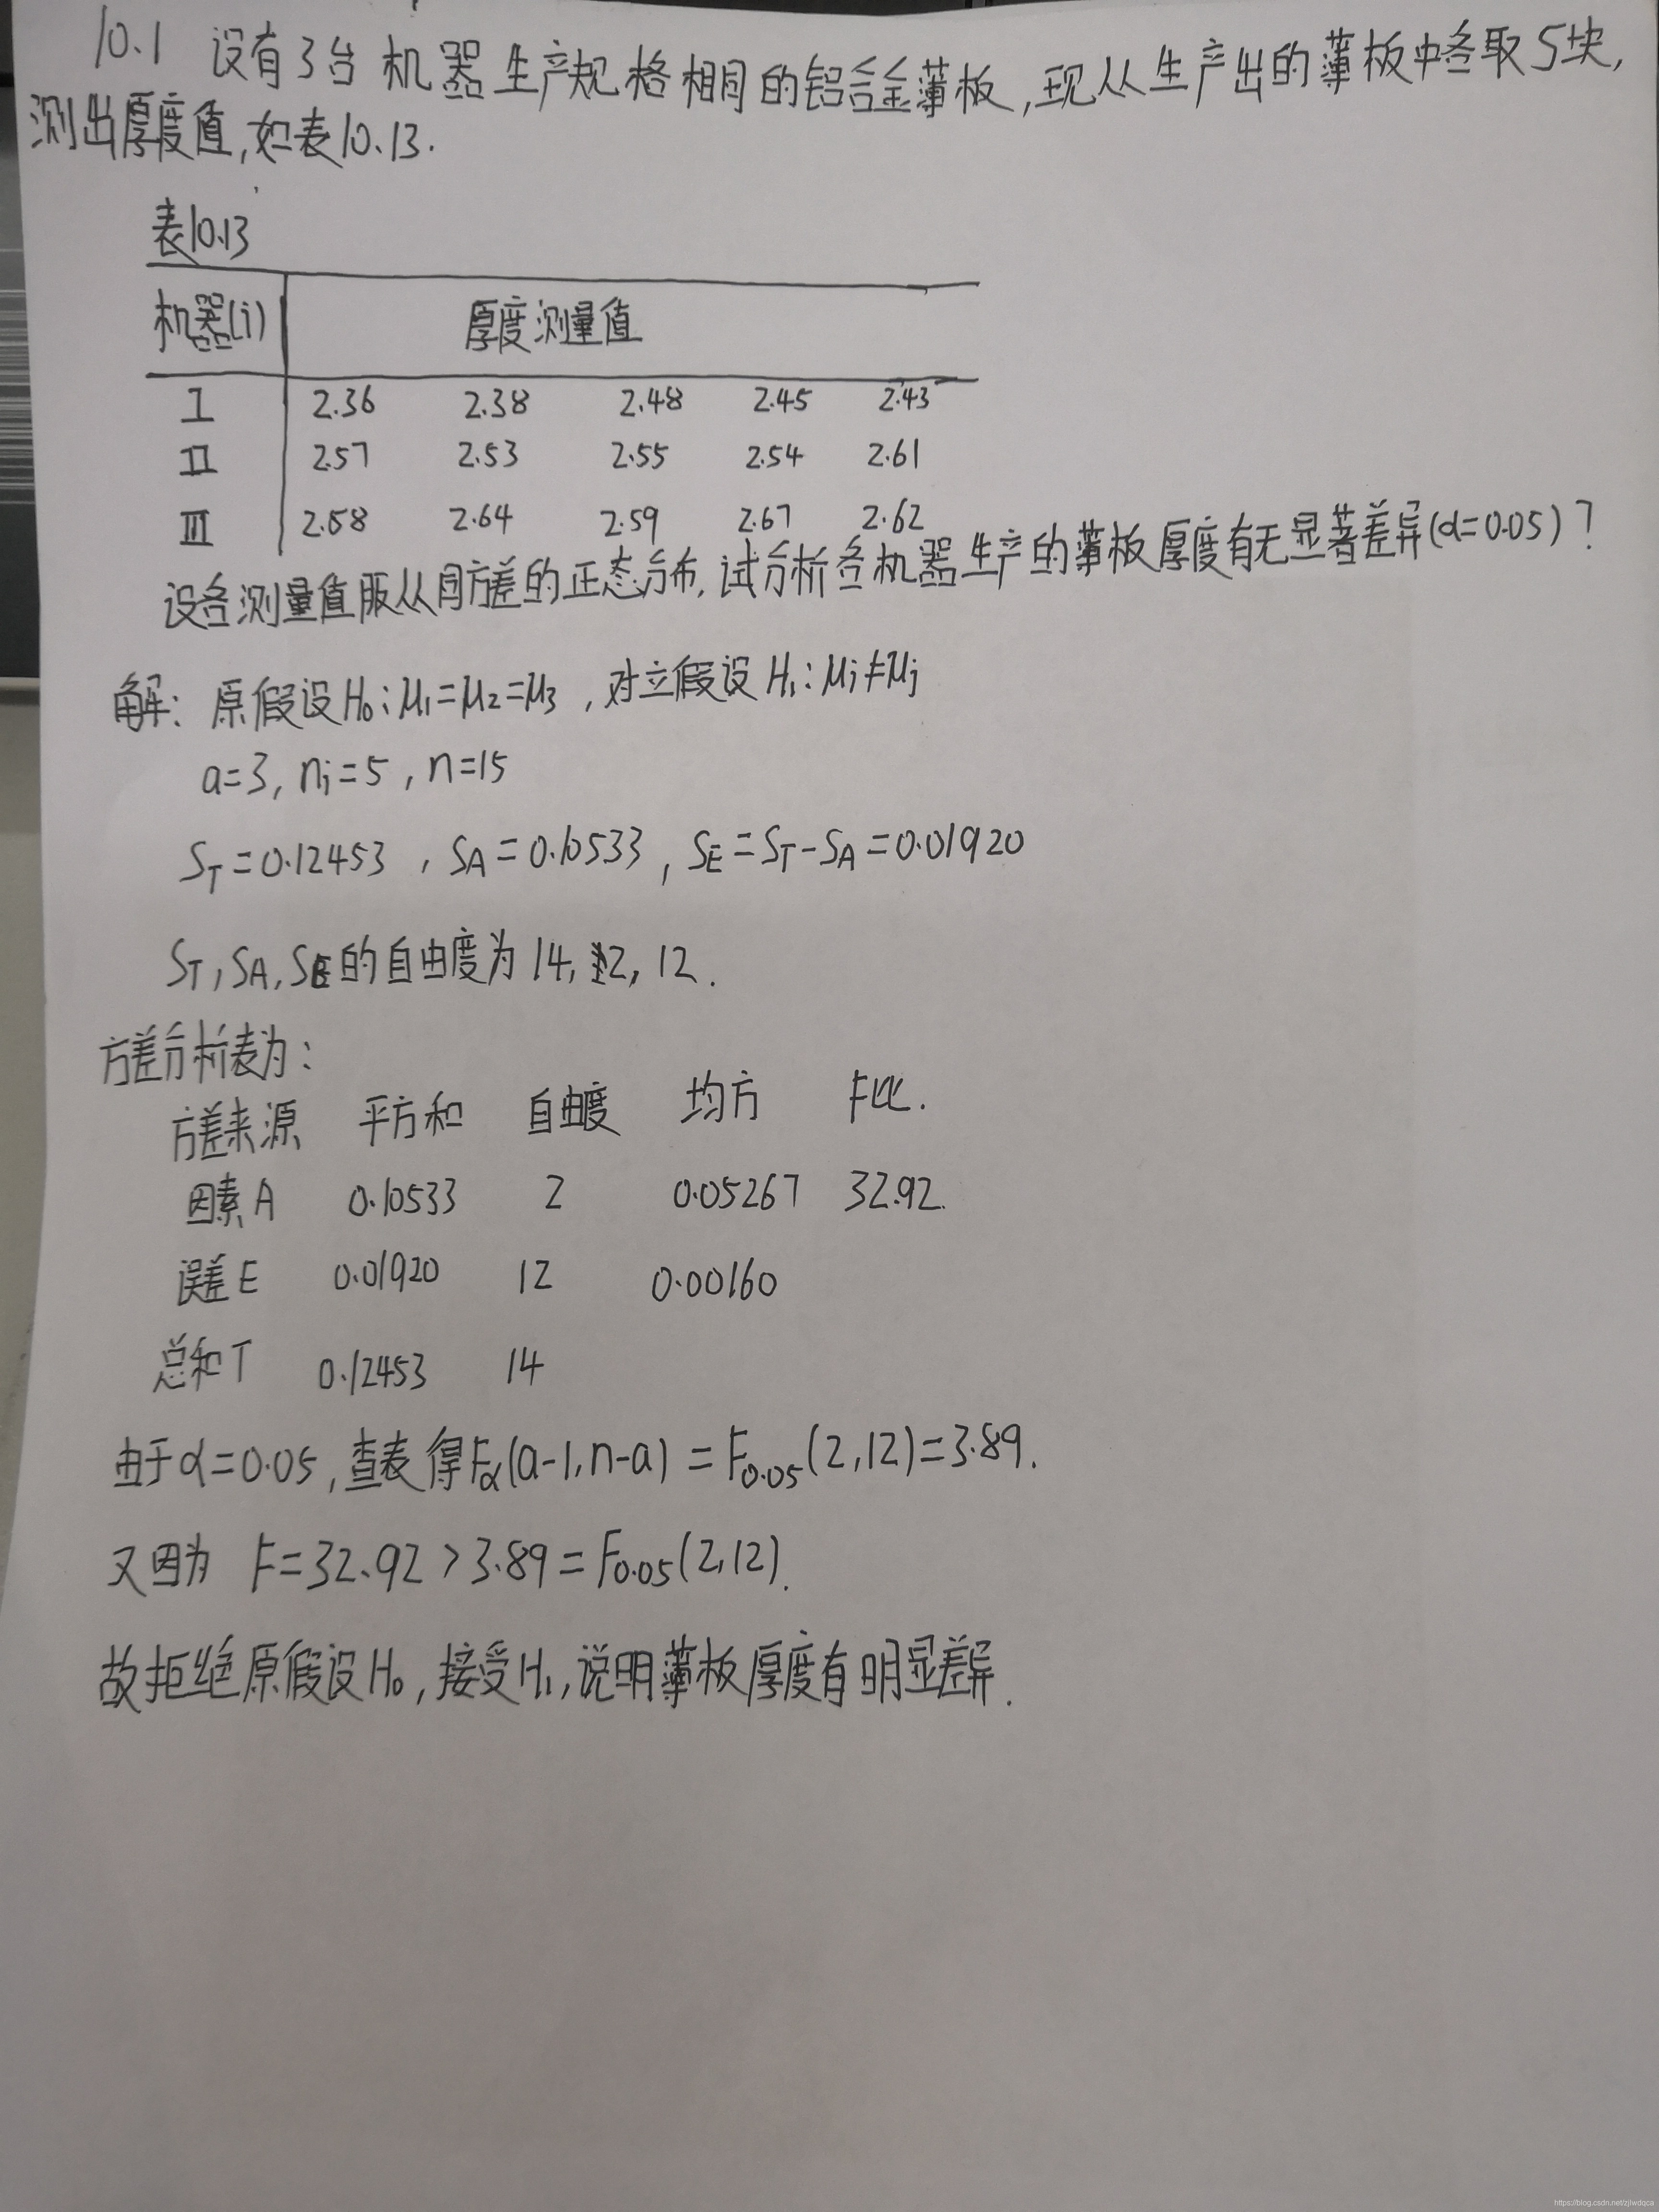 10.1 设有3台机器生产规格相同的铝合金薄板,现从生产出的薄板中各取5块,
测出厚度值,如表10.13.
表10.13
机器(i) 厚度测量值
I 2.36 2.38 2.48 2.45 2.43
II 2.57 2.53 2.55 2.54 2.61
III 2.58 2.64 2.59 2.67 2.62
设各测量值服从同方差的正态分布,试分析各机器生产的薄板厚度有无显著差异(α=0.05)?
解: 原假设H₀:μ₁=μ₂=μ₃,对立假设H₁:μi≠μj
a=3, ni=5, n=15
S_T=0.12453, S_A=0.10533, S_E=S_T-S_A=0.01920
S_T,S_A,S_E的自由度为14, 2, 12.
方差分析表为:
方差来源 平方和 自由度 均方 F比.
因素A 0.10533 2 0.05267 32.92.
误差E 0.01920 12 0.00160
总和T 0.12453 14
由于α=0.05,查表得Fα(a-1,n-a)=F0.05(2,12)=3.89.
又因为 F=32.92>3.89=F0.05(2,12).
故拒绝原假设H₀,接受H₁,说明薄板厚度有明显差异.
https://blog.csdn.net/zjlwdqca